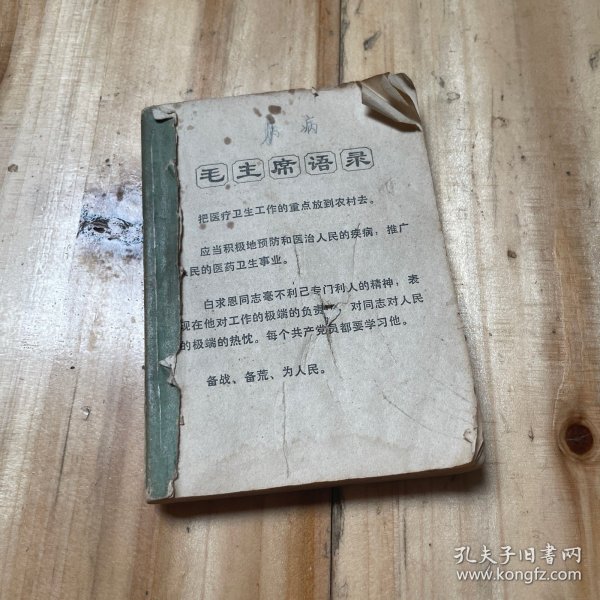 病 病
毛主席语录
把医疗卫生工作的重点放到农村去。
应当积极地预防和医治人民的疾病，推广
民的医药卫生事业。
白求恩同志毫不利己专门利人的精神，表
现在他对工作的极端的负责 ，对同志对人民
的极端的热忱。每个共产党员都要学习他。
备战、备荒、为人民。
孔夫子旧书网
www.kongfz.com